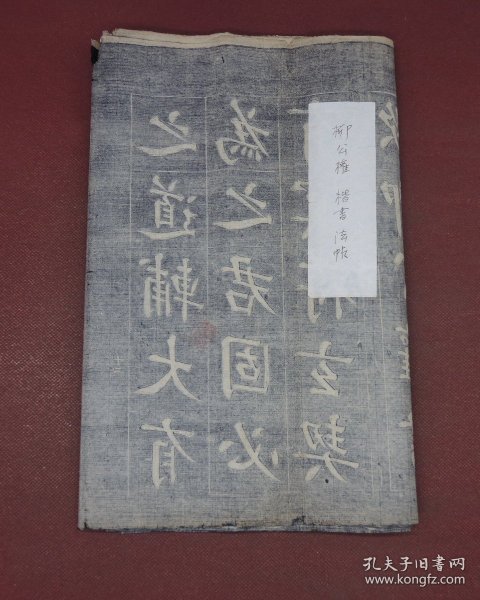 之道輔大有
為之君固必
玄契
柳公權 楷書 法帖
孔夫子旧书网
www.kongfz.com